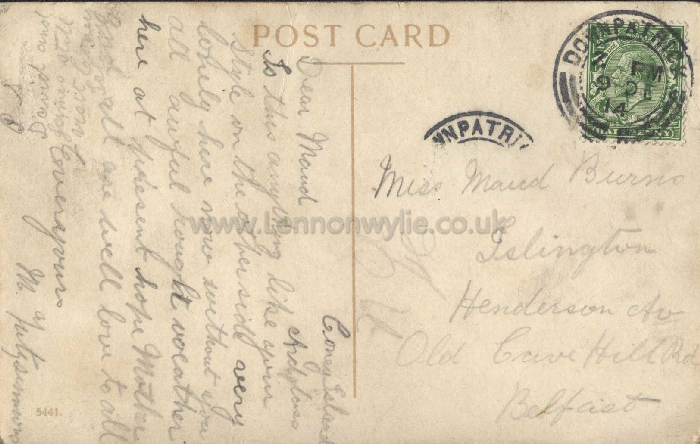 POST CARD
DOWNPATRICK
PM
9 DE
14
WNPATRI
Miss Maud Burns
Islington
Henderson Av
Old Cave Hill Rd
Belfast
Coney Island
Ardglass
Dear Maud
Is this anything like your
Style on the other side very
lonely here now without you
all awful rough weather
here at present hope Mother
and all are well love to all
Ever yours
M Fitzsimmons
www.Lennonwylie.co.uk
5441.